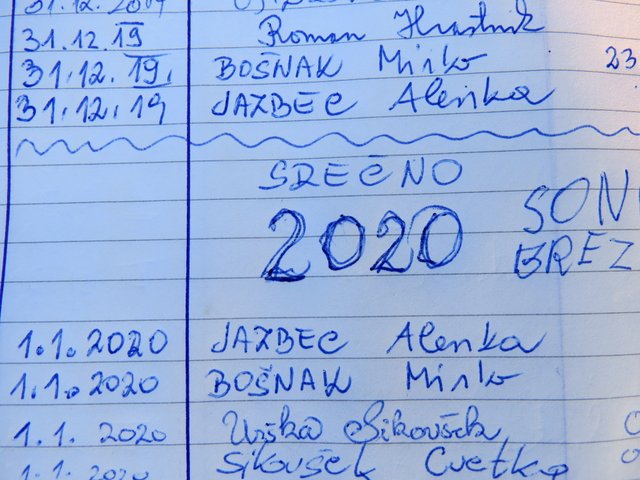 31.12.2019
31.12.19 Roman Hrastnik
31.12.19. BOŠNAK Mirko 23
31.12.19 JAZBEC Alenka
SREČNO
2020 SON
BREZ
1.1.2020 JAZBEC Alenka
1.1.2020 BOŠNAK Mirko
1.1.2020 Urška Sikovšek
1.1.2020 Sikovšek Cvetko